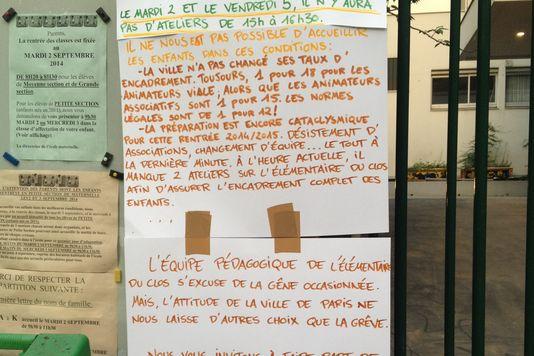 Parents,
La rentrée des classes est fixée
au
MARDI 2 SEPTEMBRE
2014
DE 8H20 à 8H30 pour les élèves de
Moyenne section et de Grande
section.
Pour les élèves de PETITE SECTION
(enfants nés en 2011), nous vous
demandons de vous présenter à 9h30
MARDI 2 ou MERCREDI 3 dans la
classe d'affectation de votre enfant.
(Voir affichage)
La directrice de l'école maternelle.
A L'ATTENTION DES PARENTS DONT LES ENFANTS
2 ET 3 SEPTEMBRE 2014
MERCI DE RESPECTER LA
PARTITION SUIVANTE :
première lettre du nom de famille.
A à K : accueil le MARDI 2 SEPTEMBRE
de 9h30 à 11h
LE MARDI 2 ET LE VENDREDI 5, IL N'Y AURA
PAS D'ATELIERS DE 15h À 16h30.
IL NE NOUS EST PAS POSSIBLE D'ACCUEILLIR
LES ENFANTS DANS CES CONDITIONS:
-LA VILLE N'A PAS CHANGÉ SES TAUX D'
ENCADREMENT. TOUJOURS, 1 POUR 18 POUR LES
ANIMATEURS VILLE, ALORS QUE LES ANIMATEURS
ASSOCIATIFS SONT 1 POUR 15. LES NORMES
LÉGALES SONT DE 1 POUR 12!
-LA PRÉPARATION EST ENCORE CATACLYSMIQUE
POUR CETTE RENTRÉE 2014/2015. DÉSISTEMENT D'
ASSOCIATIONS, CHANGEMENT D'ÉQUIPE... LE TOUT À
LA DERNIÈRE MINUTE. À L'HEURE ACTUELLE, IL
MANQUE 2 ATELIERS SUR L'ÉLÉMENTAIRE DU CLOS
AFIN D'ASSURER L'ENCADREMENT COMPLET DES
ENFANTS.
...
L'ÉQUIPE PÉDAGOGIQUE DE L'ÉLÉMENTAIRE
DU CLOS S'EXCUSE DE LA GÊNE OCCASIONNÉE.
MAIS, L'ATTITUDE DE LA VILLE DE PARIS NE
NOUS LAISSE D'AUTRES CHOIX QUE LA GRÈVE.
NOUS VOUS INVITONS À FAIRE PART DE